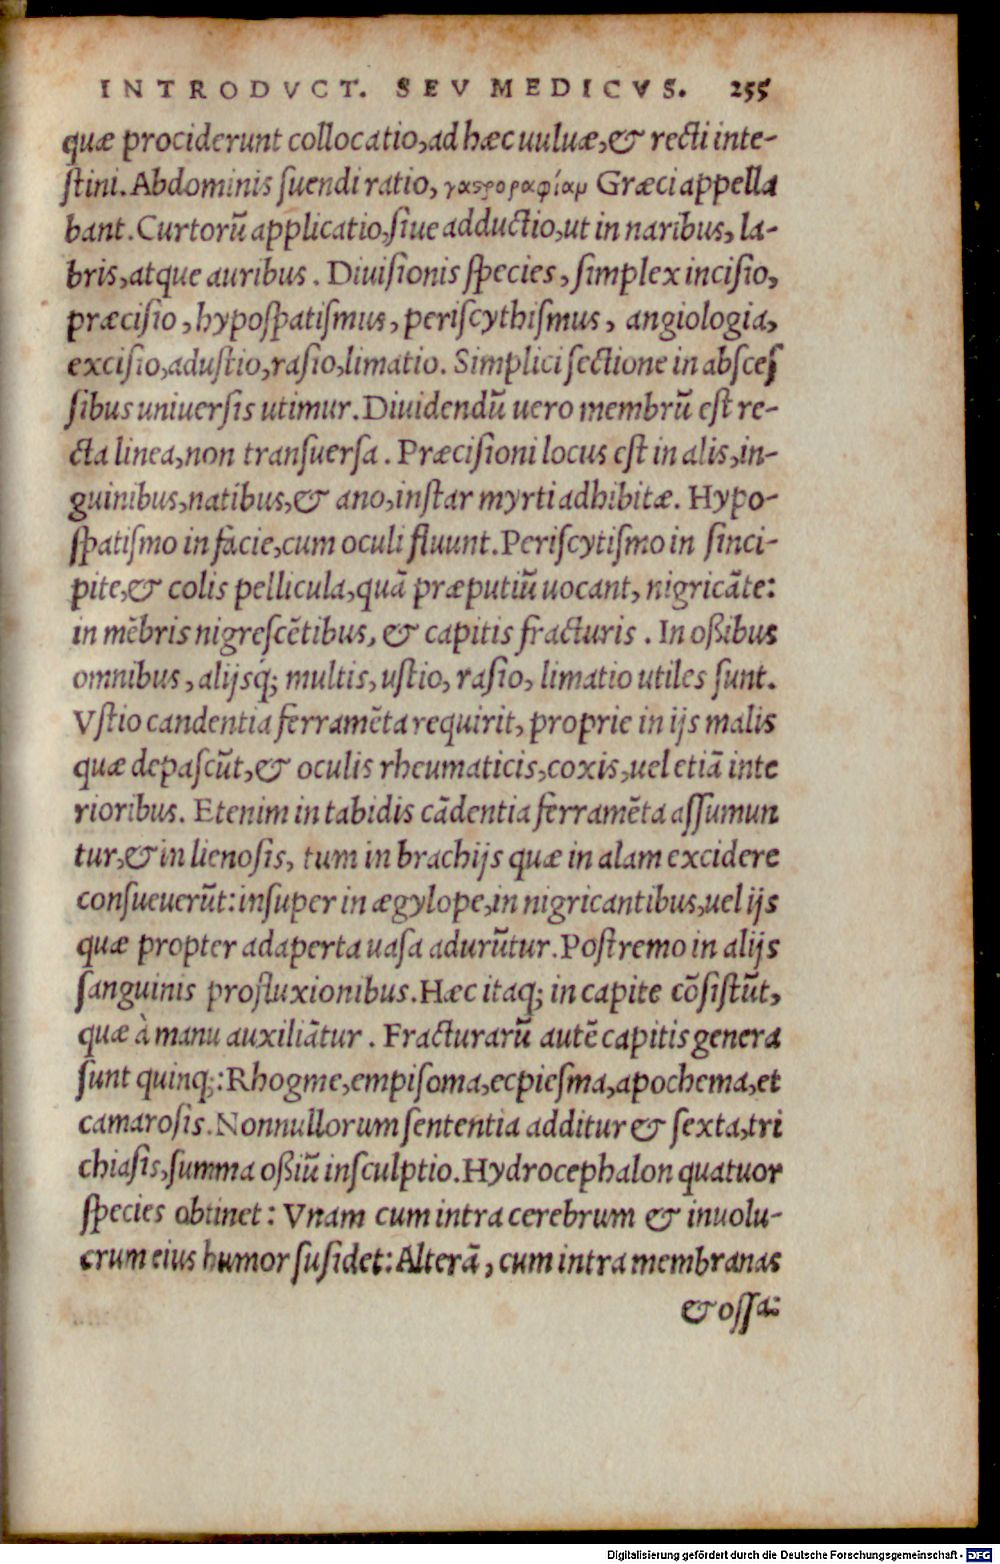 INTRODVCT. SEV MEDICVS. 255
quæ prociderunt collocatio, ad hæc uuluæ, & recti inte-
ſtini. Abdominis ſuendi ratio, γαϛροραφίαμ Græci appella
bant. Curtorũ applicatio, ſiue adductio, ut in naribus, la-
bris, atque auribus. Diuiſionis ſpecies, ſimplex inciſio,
præciſio, hypoſpatiſmus, periſcythiſmus, angiologia,
exciſio, aduſtio, raſio, limatio. Simplici ſectione in abſceſ
ſibus uniuerſis utimur. Diuidendũ uero membrũ eſt re-
cta linea, non tranſuerſa. Præciſioni locus eſt in alis, in-
guinibus, natibus, & ano, inſtar myrti adhibitæ. Hypo-
ſpatiſmo in facie, cum oculi fluunt. Periſcytiſmo in ſinci-
pite, & colis pellicula, quã præputiũ uocant, nigricãte:
in mẽbris nigreſcẽtibus, & capitis fracturis. In oßibus
omnibus, alijsq́; multis, uſtio, raſio, limatio utiles ſunt.
Vſtio candentia ferramẽta requirit, proprie in ijs malis
quæ depaſcũt, & oculis rheumaticis, coxis, uel etiã inte
rioribus. Etenim in tabidis cãdentia ferramẽta aſſumun
tur, & in lienoſis, tum in brachijs quæ in alam excidere
conſueuerũt: inſuper in ægylope, in nigricantibus, uel ijs
quæ propter adaperta uaſa adurũtur. Poſtremo in alijs
ſanguinis profluxionibus. Hæc itaq; in capite cõſiſtũt,
quæ à manu auxiliãtur. Fracturarũ autẽ capitis genera
ſunt quinq;: Rhogme, empiſoma, ecpieſma, apochema, et
camaroſis. Nonnullorum ſententia additur & ſexta, tri
chiaſis, ſumma oßiũ inſculptio. Hydrocephalon quatuor
ſpecies obtinet: Vnam cum intra cerebrum & inuolu-
crum eius humor ſuſidet: Alterã, cum intra membranas
& oſſa:
Digitalisierung gefördert durch die Deutsche Forschungsgemeinschaft - DFG